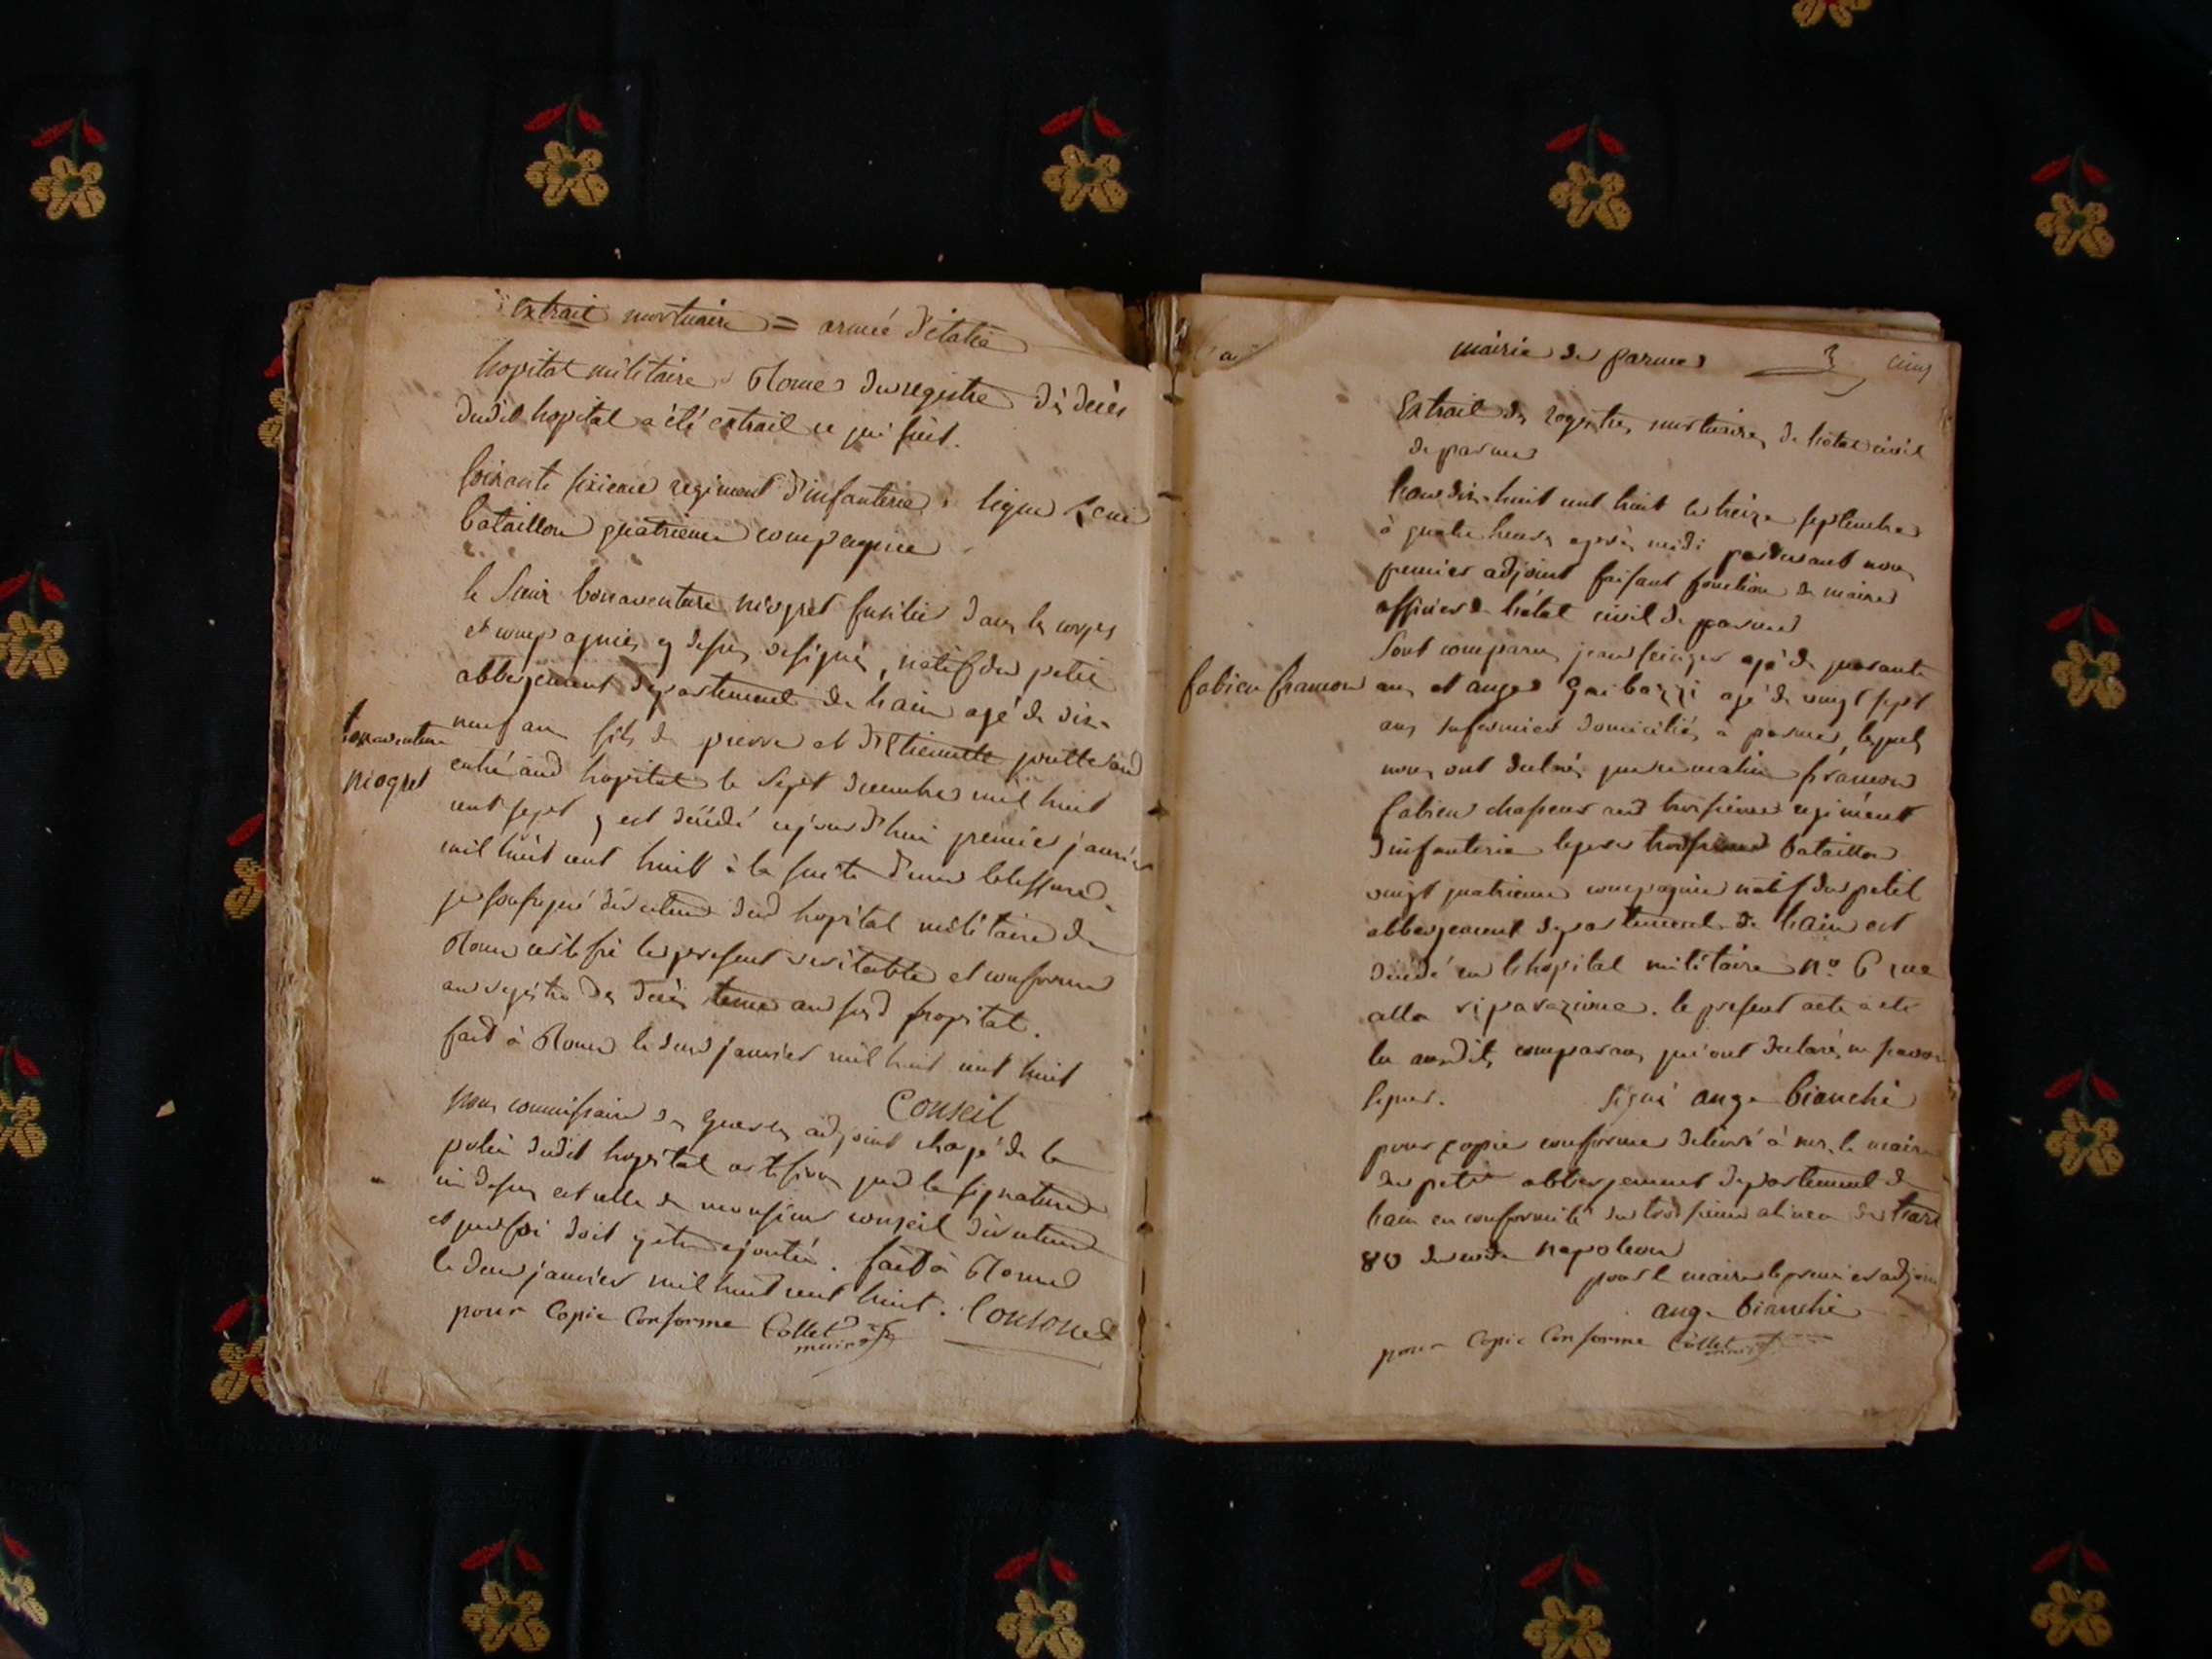 extrait mortuaire = armée d'italie
hopital militaire Rome du registre dè décès
dudit hopital a été extrait ce qui suit.
soixante sixieme regiment d'infanterie ligne
bataillon quatrieme compagnie
le sieur bonaventure niogret fusilier dans les corps
et compagnies cy dessus designés, natif du petit
abbergement departement de lain agé de dix
neuf ans fils de pierre et d'Etiennette
bonaventure
niogret
entré aud hopital le sept decembre mil huit
cent sept y est décédé cejourd'hui premier janvier
mil huit cent huit à la suite d'une blessure.
je soussigné directeur dud hopital militaire de
Rome certifie le present veritable et conforme
au registre des décès tenu audit hopital.
fait à Rome le deux janvier mil huit cent huit
Conseil
nous commissaire des guerres adjoint chargé de la
police dudit hopital certifions que la signature
ci dessus est celle de monsieur conseil directeur
et que foi doit y être ajoutée. fait à Rome
le deux janvier mil huit cent huit.
pour Copie Conforme Collet
maire
mairie de parme 3 cinq
Extrait des registres mortuaires de l'état civil
de parme
l'an dix huit cent huit le treize septembre
à quatre heures après midi pardevant nous
premier adjoint faisant fonction de maire
officier de l'état civil de parme
sont comparus jean agé de quarante
fabien francois
ans et ange Garbazzi agé de vingt sept
ans infirmiers domiciliés a parme, lesquels
nous ont declarés que ce matin francois
fabien chasseur au troisieme regiment
d'infanterie legere troisieme bataillon
vingt quatrieme compagnie natif du petit
abbergement departement de lain est
décédé en l'hopital militaire n° 6 rue
alla riparazione. le present acte a été
lu auxdits comparans qui ont declarés ne savoir
signer. signé ange bianchi
pour copie conforme delivré à mr. le maire
du petit abbergement departement de
lain en conformité du troisieme alinea de l'art
80 du code napoleon
pour le maire le premier adjoint
ange bianchi
pour Copie Conforme Collet